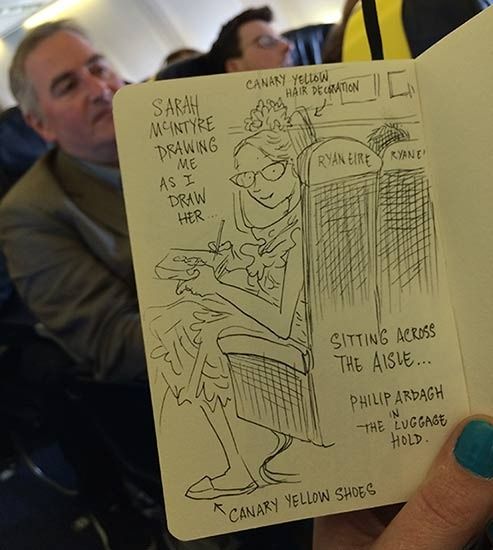 CANARY YELLOW
HAIR DECORATION
SARAH
MCINTYRE
DRAWING
ME
AS I
DRAW
HER...
RYAN EIRE
RYANE
SITTING ACROSS
THE AISLE...
PHILIP ARDAGH
IN
THE LUGGAGE
HOLD.
CANARY YELLOW SHOES